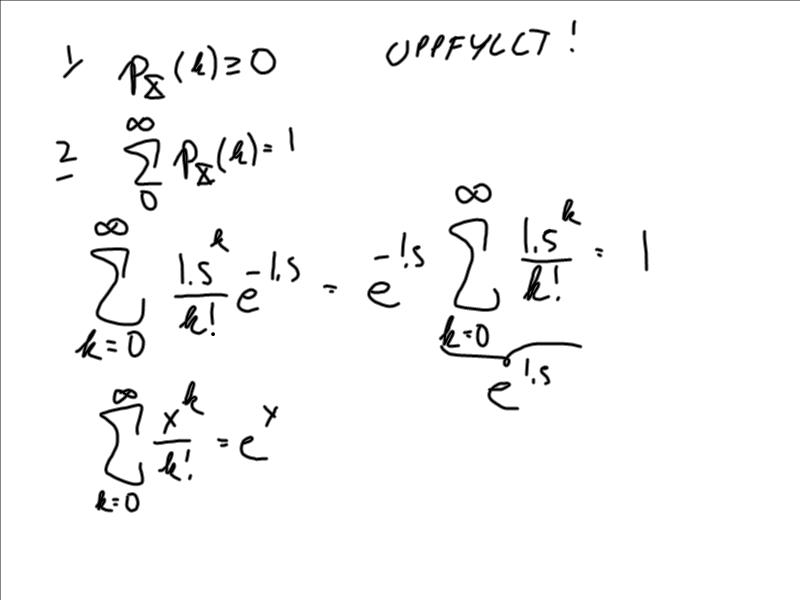 1/ p_X(k) ≥ 0 UPPFYLLT!
2 ∑_0^∞ p_X(k) = 1
∑_{k=0}^∞ 1.5^k/k! e^{-1.5} = e^{-1.5} ∑_{k=0}^∞ 1.5^k/k! = 1
e^{1.5}
∑_{k=0}^∞ x^k/k! = e^x